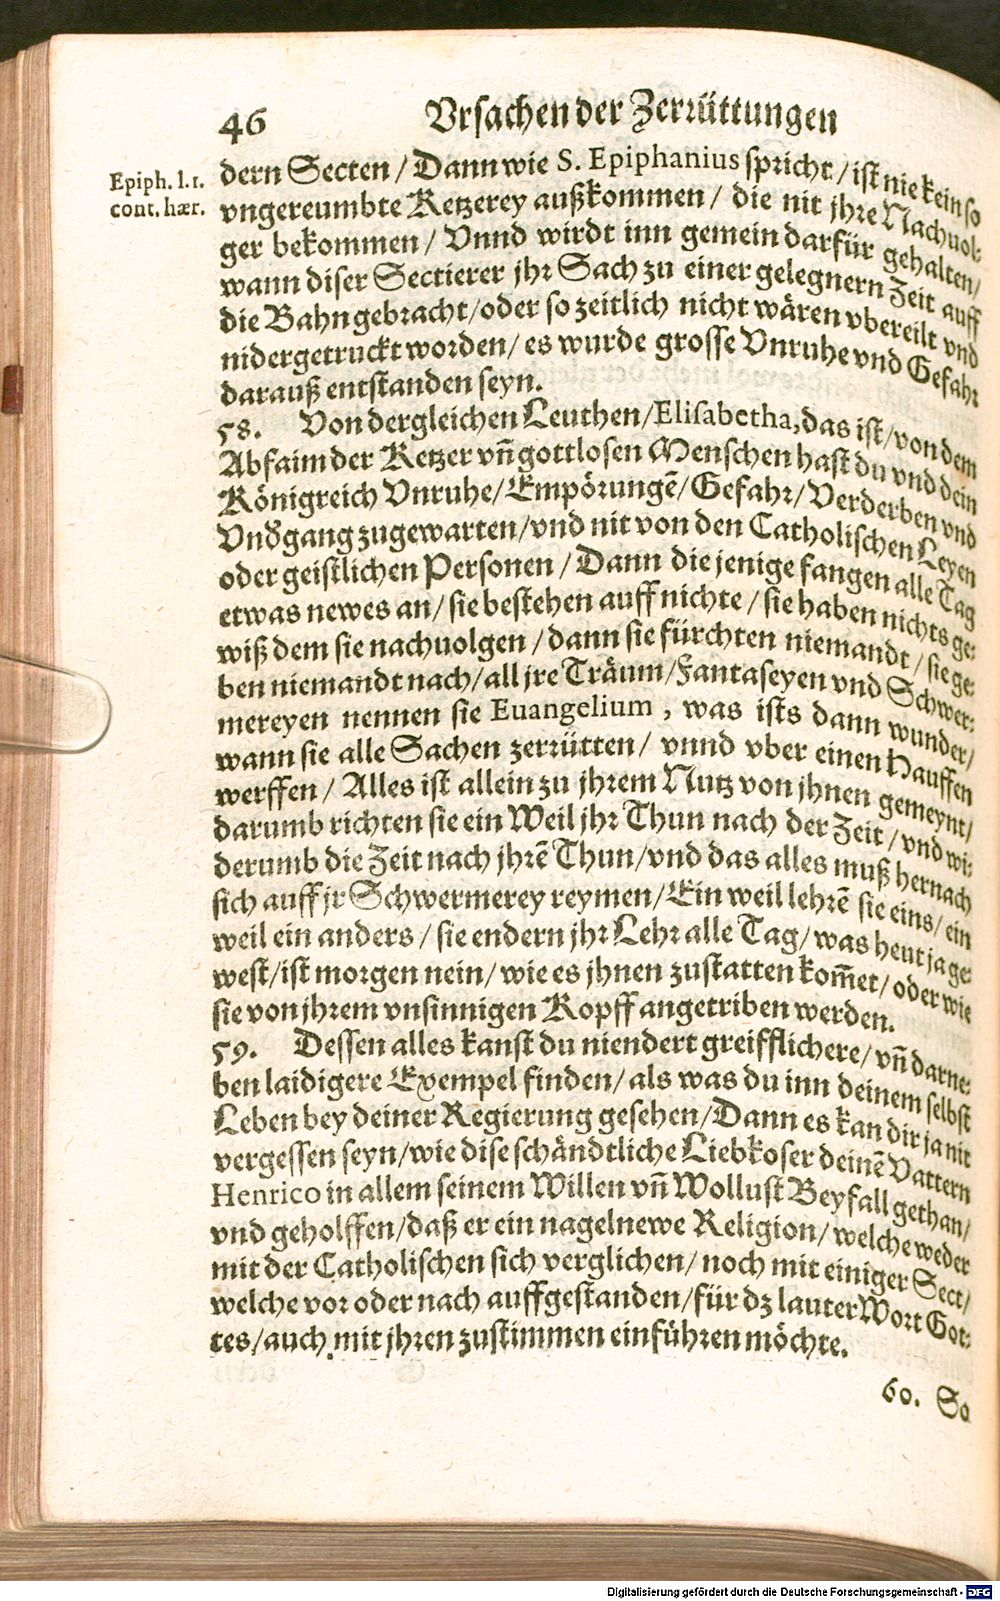 46 Vrsachen der Zerrüttungen
Epiph. l.1.
cont. hær.
dern Secten / Dann wie S. Epiphanius spricht / ist nie kein so
vngereumbte Ketzerey außkommen / die nit jhre Nachuol-
ger bekommen / Vnnd wirdt inn gemein darfür gehalten /
wann diser Sectierer jhr Sach zu einer gelegnern Zeit auff
die Bahn gebracht / oder so zeitlich nicht wären vbereilt vnd
nidergetruckt worden / es wurde grosse Vnruhe vnd Gefahr
darauß entstanden seyn.
58. Von dergleichen Leuthen / Elisabetha, das ist / von dem
Abfaim der Ketzer vñ gottlosen Menschen hast du vnd dein
Königreich Vnruhe / Empörungẽ / Gefahr / Verderben vnd
Vndgang zugewarten / vnd nit von den Catholischen Leyen
oder geistlichen Personen / Dann die jenige fangen alle Tag
etwas newes an / sie bestehen auff nichte / sie haben nichts ge-
wiß dem sie nachuolgen / dann sie fürchten niemandt / sie ge-
ben niemandt nach / all jre Träum / Fantaseyen vnd Schwer-
mereyen nennen sie Euangelium , was ists dann wunder /
wann sie alle Sachen zerrütten / vnnd vber einen Hauffen
werffen / Alles ist allein zu jhrem Nutz von jhnen gemeynt /
darumb richten sie ein Weil jhr Thun nach der Zeit / vnd wi-
derumb die Zeit nach jhrẽ Thun / vnd das alles muß hernach
sich auff jr Schwermerey reymen / Ein weil lehrẽ sie eins / ein
weil ein anders / sie endern jhr Lehr alle Tag / was heut ja ge-
west / ist morgen nein / wie es jhnen zustatten kom̃et / oder wie
sie von jhrem vnsinnigen Kopff angetriben werden.
59. Dessen alles kanst du niendert greifflichere / vñ darne-
ben laidigere Exempel finden / als was du inn deinem selbst
Leben bey deiner Regierung gesehen / Dann es kan dir ja nit
vergessen seyn / wie dise schändtliche Liebkoser deinẽ Vattern
Henrico in allem seinem Willen vñ Wollust Beyfall gethan /
vnd geholffen / daß er ein nagelnewe Religion / welche weder
mit der Catholischen sich verglichen / noch mit einiger Sect /
welche vor oder nach auffgestanden / für dz lauter Wort Got-
tes / auch mit jhren zustimmen einführen möchte.
60. So
Digitalisierung gefördert durch die Deutsche Forschungsgemeinschaft - DFG